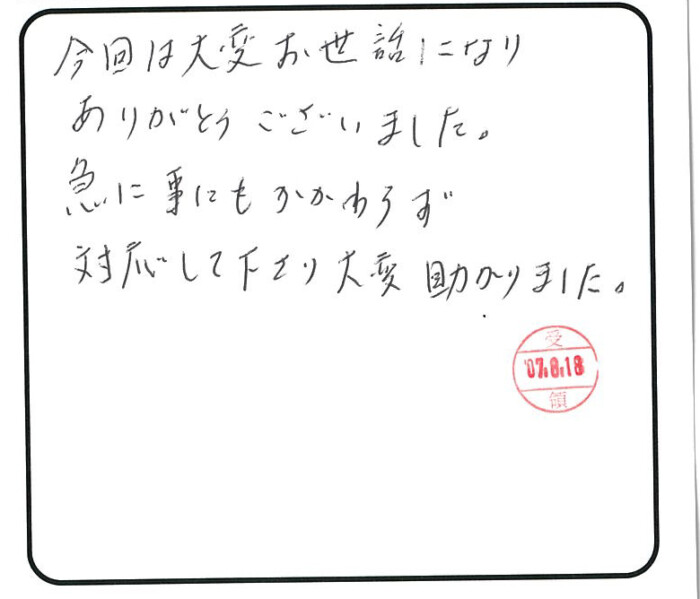 今回は大変お世話になり
ありがとうございました。
急に事にもかかわらず
対応して下さり大変助かりました。
受
'07.8.18
領